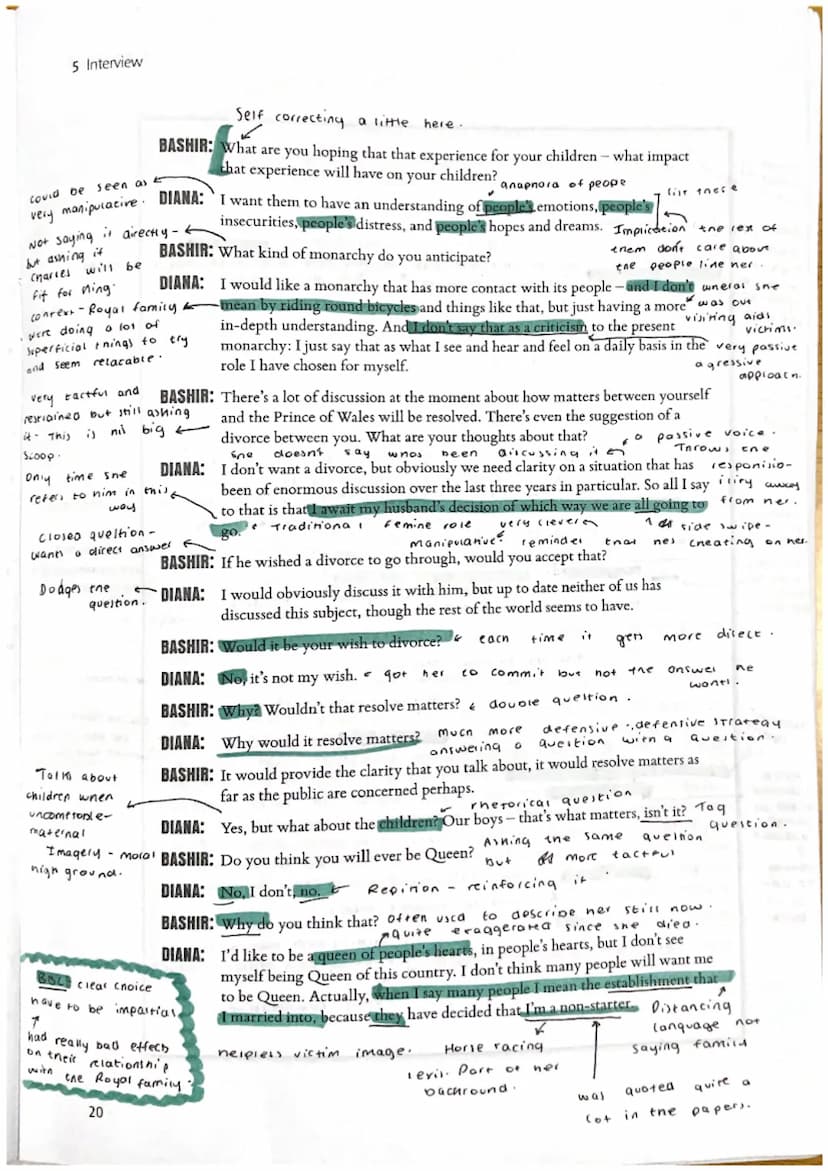 5 Interview
Self correcting a little here.
BASHIR: What are you hoping that that experience for your children – what impact
that experience will have on your children?
could be seen as
very manipulative.
anaphora of people
DIANA: I want them to have an understanding of people's emotions, people's
insecurities, people's distress, and people's hopes and dreams.
list these
Implication the rest of
them don't care about
the people like her.
Not saying it directly -
but asking if
Charles will be
fit for King.
BASHIR: What kind of monarchy do you anticipate?
DIANA: I would like a monarchy that has more contact with its people – and I don't
mean by riding round bicycles and things like that, but just having a more
in-depth understanding. And I don't say that as a criticism to the present
monarchy: I just say that as what I see and hear and feel on a daily basis in the
role I have chosen for myself.
context - Royal family
were doing a lot of
superficial things to try
and seem relatable.
she
was out
visiting aids
victims.
very passive
agressive
approach.
very tactful and
restrained but still asking
it - This is his big
scoop.
BASHIR: There's a lot of discussion at the moment about how matters between yourself
and the Prince of Wales will be resolved. There's even the suggestion of a
divorce between you. What are your thoughts about that?
passive voice.
Throws the
responsibility away
from her.
she doesn't say whos been discussing it
DIANA: I don't want a divorce, but obviously we need clarity on a situation that has
been of enormous discussion over the last three years in particular. So all I say
to that is that I await my husband's decision of which way we are all going to
go.
Only time she
refers to him in this
way
Traditional femine role
very clever
manipulative?
side swipe -
reminder that hes cheating on her.
Closed question -
wants a direct answer
BASHIR: If he wished a divorce to go through, would you accept that?
Dodges the
question.
DIANA: I would obviously discuss it with him, but up to date neither of us has
discussed this subject, though the rest of the world seems to have.
BASHIR: Would it be your wish to divorce?
each time it gets more direct.
DIANA: No, it's not my wish.
got her to commit but not the answer he
wants.
BASHIR: Why? Wouldn't that resolve matters?
double question.
DIANA: Why would it resolve matters?
much more defensive, defensive strategy
answering a question with a question.
BASHIR: It would provide the clarity that you talk about, it would resolve matters as
far as the public are concerned perhaps.
Talks about
children when
uncomfortable -
maternal
Imagery - moral
high ground.
rhetorical question
DIANA: Yes, but what about the children? Our boys – that's what matters, isn't it?
Tag
question.
BASHIR: Do you think you will ever be Queen?
Asking the same question
but more tactful
DIANA: No, I don't, no.
Repition - reinforcing it
BASHIR: Why do you think that?
Often used to describe her still now.
quite exaggerated since she died.
DIANA: I'd like to be a queen of people's hearts, in people's hearts, but I don't see
myself being Queen of this country. I don't think many people will want me
to be Queen. Actually, when I say many people I mean the establishment that
I married into, because they have decided that I'm a non-starter.
BBC clear choice
have to be impartial
had really bad effects
on their relationship
with the Royal family.
helpless victim image.
Horse racing
lexis. Part of her
background.
Distancing
language not
saying family
was quoted quite a
lot in the papers.
20